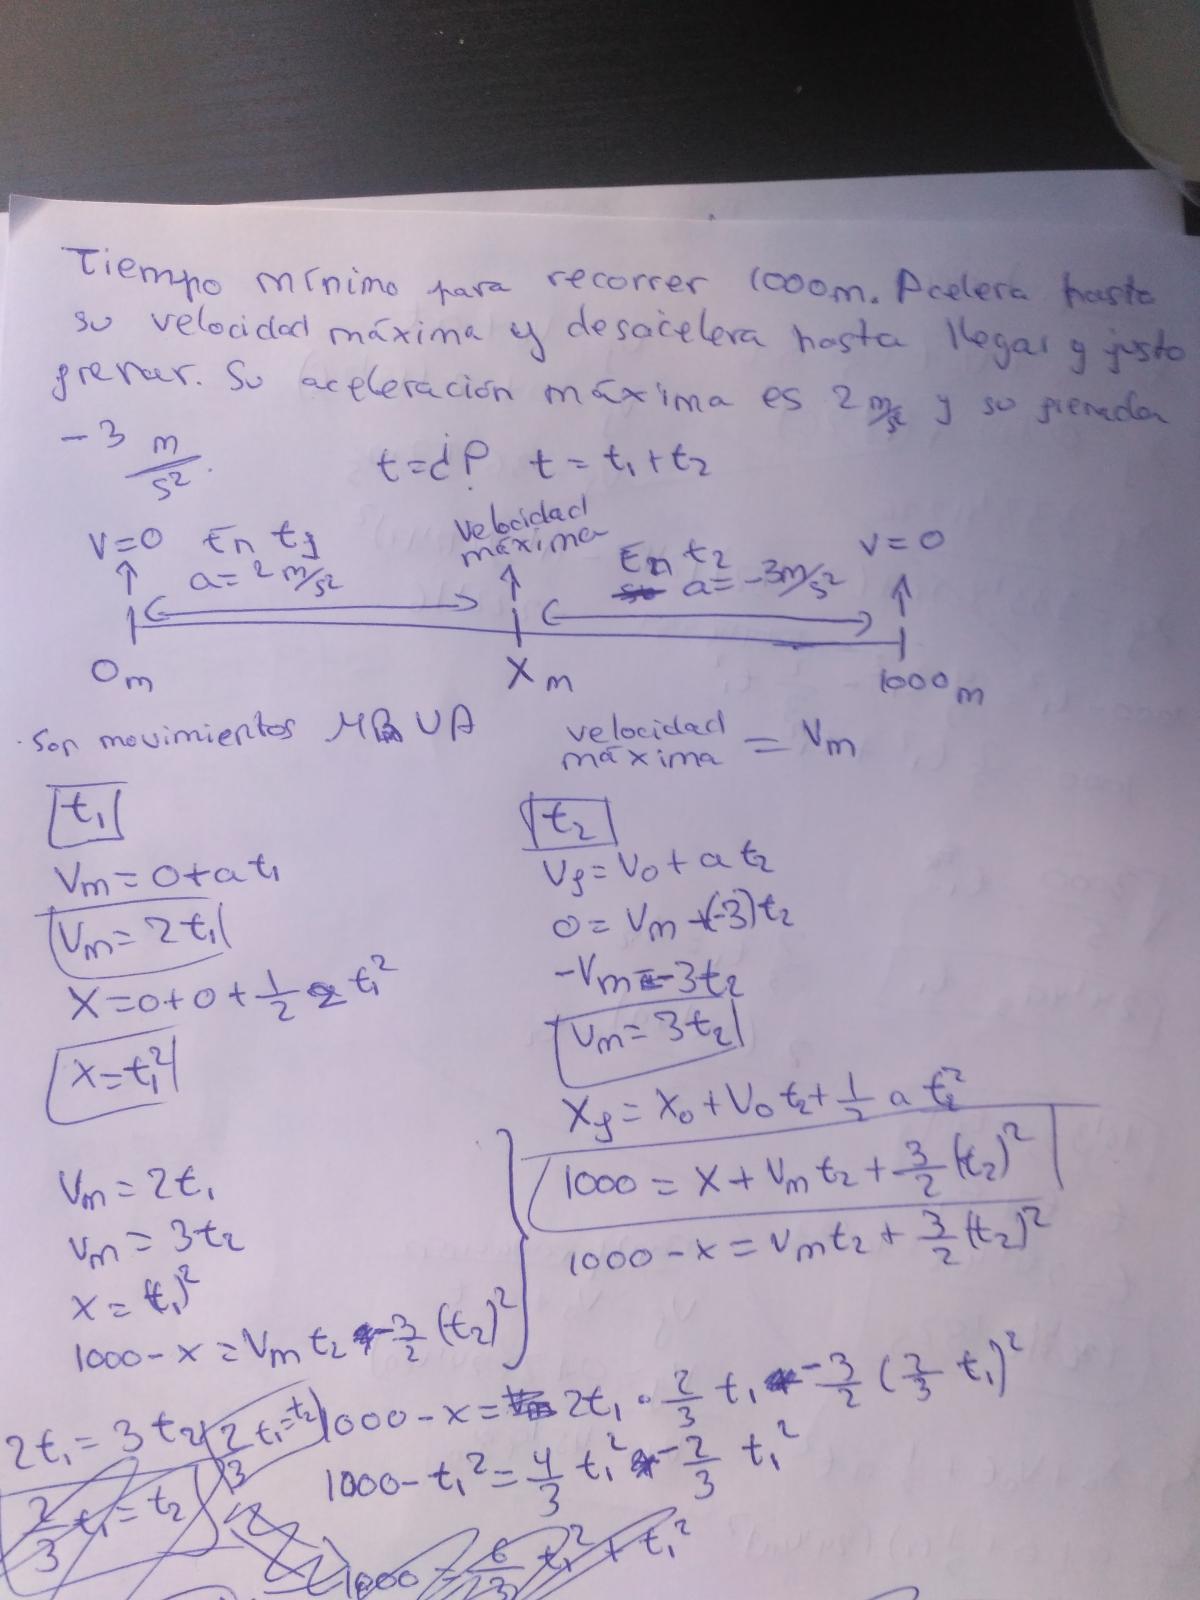 Tiempo mínimo para recorrer 1000m. Acelera hasta
su velocidad máxima y desacelera hasta llegar y justo
frenar. Su aceleración máxima es 2 m/s² y su frenada
-3 m/s².    t=¿?    t = t₁+t₂
v=0    En t₁    velocidad máxima    En t₂    v=0
a=2 m/s²    a=-3m/s²
0m    Xm    1000m
Son movimientos MRUA    velocidad máxima = Vm
t₁    t₂
Vm=0+at₁    Vf=V₀+at₂
Vm=2t₁    0=Vm+(-3)t₂
-Vm=-3t₂
X=0+0+1/2 2 t₁²    Vm=3t₂
X=t₁²    Xf=X₀+V₀t₂+1/2 a t₂²
Vm=2t₁    1000=X+Vm t₂+3/2(t₂)²
Vm=3t₂    1000-x=Vmt₂+3/2(t₂)²
x=(t₁)²
1000-x=Vm t₂-3/2(t₂)²
2t₁=3t₂    2/3 t₁=t₂    1000-x=2t₁·2/3 t₁-3/2(2/3 t₁)²
2/3 t₁=t₂    1000-t₁²=4/3 t₁²-2/3 t₁²
1000=6/3 t₁²+t₁²